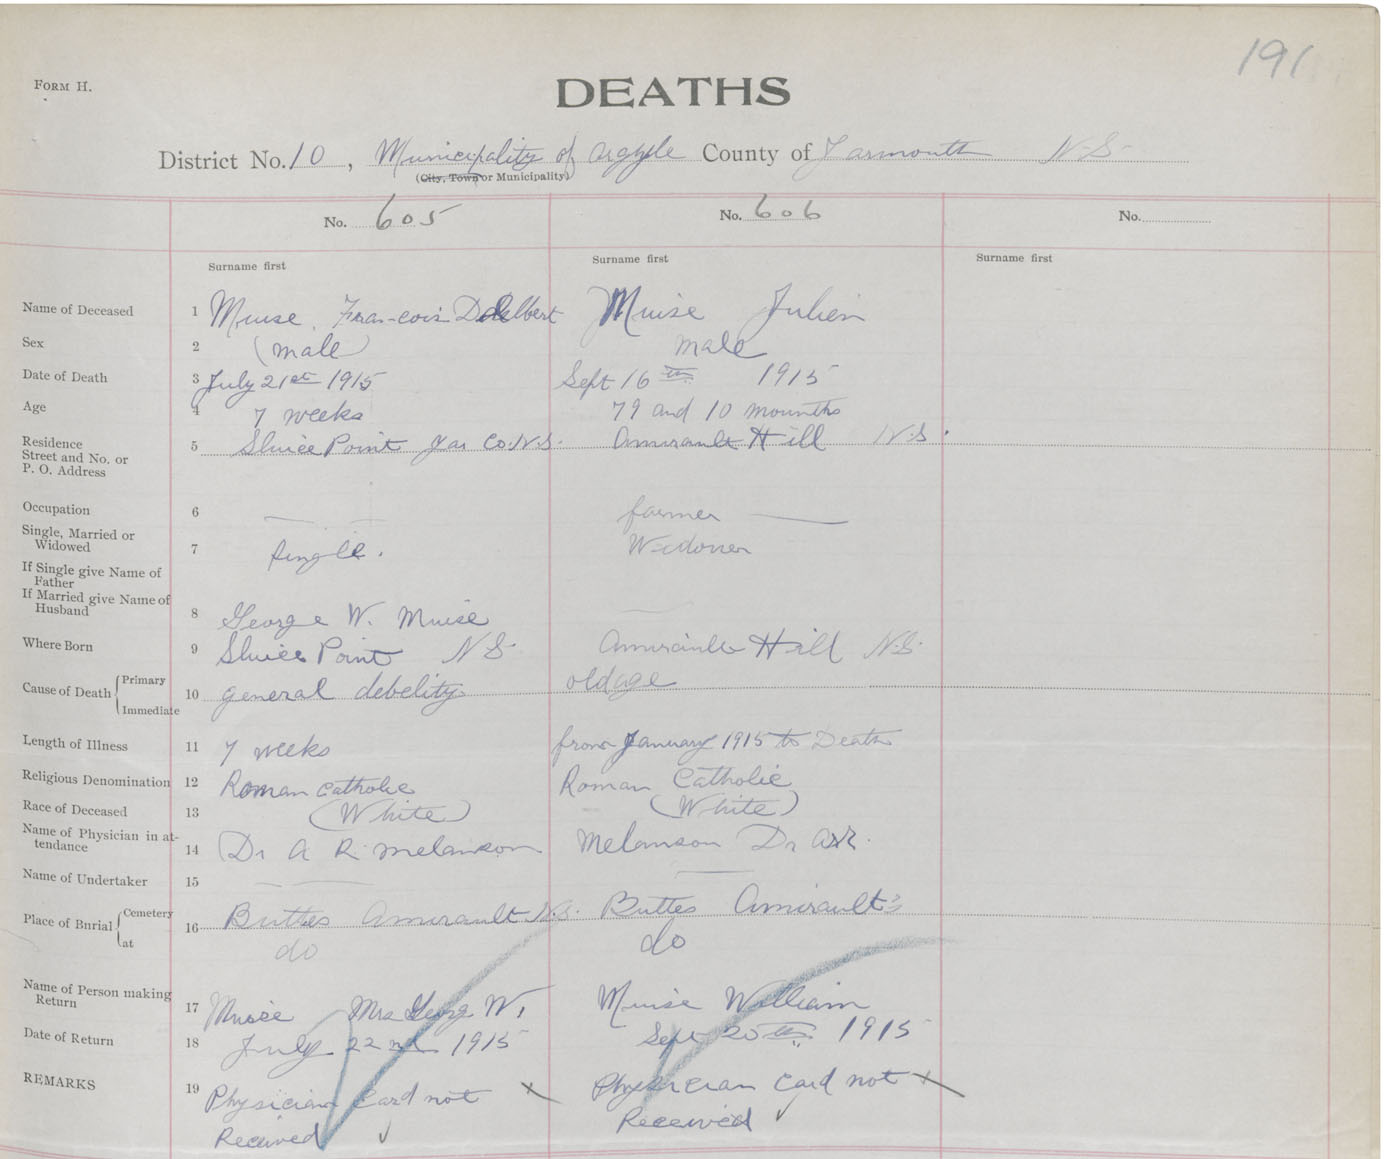 191
FORM H.
DEATHS
District No. 10, Municipality of Argyle County of Yarmouth N-S-
(City, Town or Municipality)
No. 605 No. 606 No.
Surname first Surname first Surname first
Name of Deceased 1 Muise, Fran-cois Delbert Muise Julien
Sex 2 (male) male
Date of Death 3 July 21st 1915 Sept 16th 1915
Age 4 7 weeks 79 and 10 mounths
Residence Street and No. or P. O. Address 5 Sluice Point Yar Co. N.S. Amirault Hill N.S.
Occupation 6 — — farmer —
Single, Married or Widowed 7 single. Widower
If Single give Name of Father
If Married give Name of Husband 8 George W. Muise —
Where Born 9 Sluice Point N S. Amirault Hill N.S.
Cause of Death { Primary Immediate 10 general debelity oldage
Length of Illness 11 7 weeks from January 1915 to Death
Religious Denomination 12 Roman Catholic Roman Catholic
Race of Deceased 13 (White) (White)
Name of Physician in attendance 14 Dr A R. Melanson Melanson Dr
Name of Undertaker 15 — — —
Place of Burial { Cemetery 16 Buttes Amirault N.S. Buttes Amirault's
at do do
Name of Person making Return 17 Muise Mrs Georg W. Muise William
Date of Return 18 July 22nd 1915 Sept 20th 1915
REMARKS 19 Physician card not x Physician Card not x
Received Received